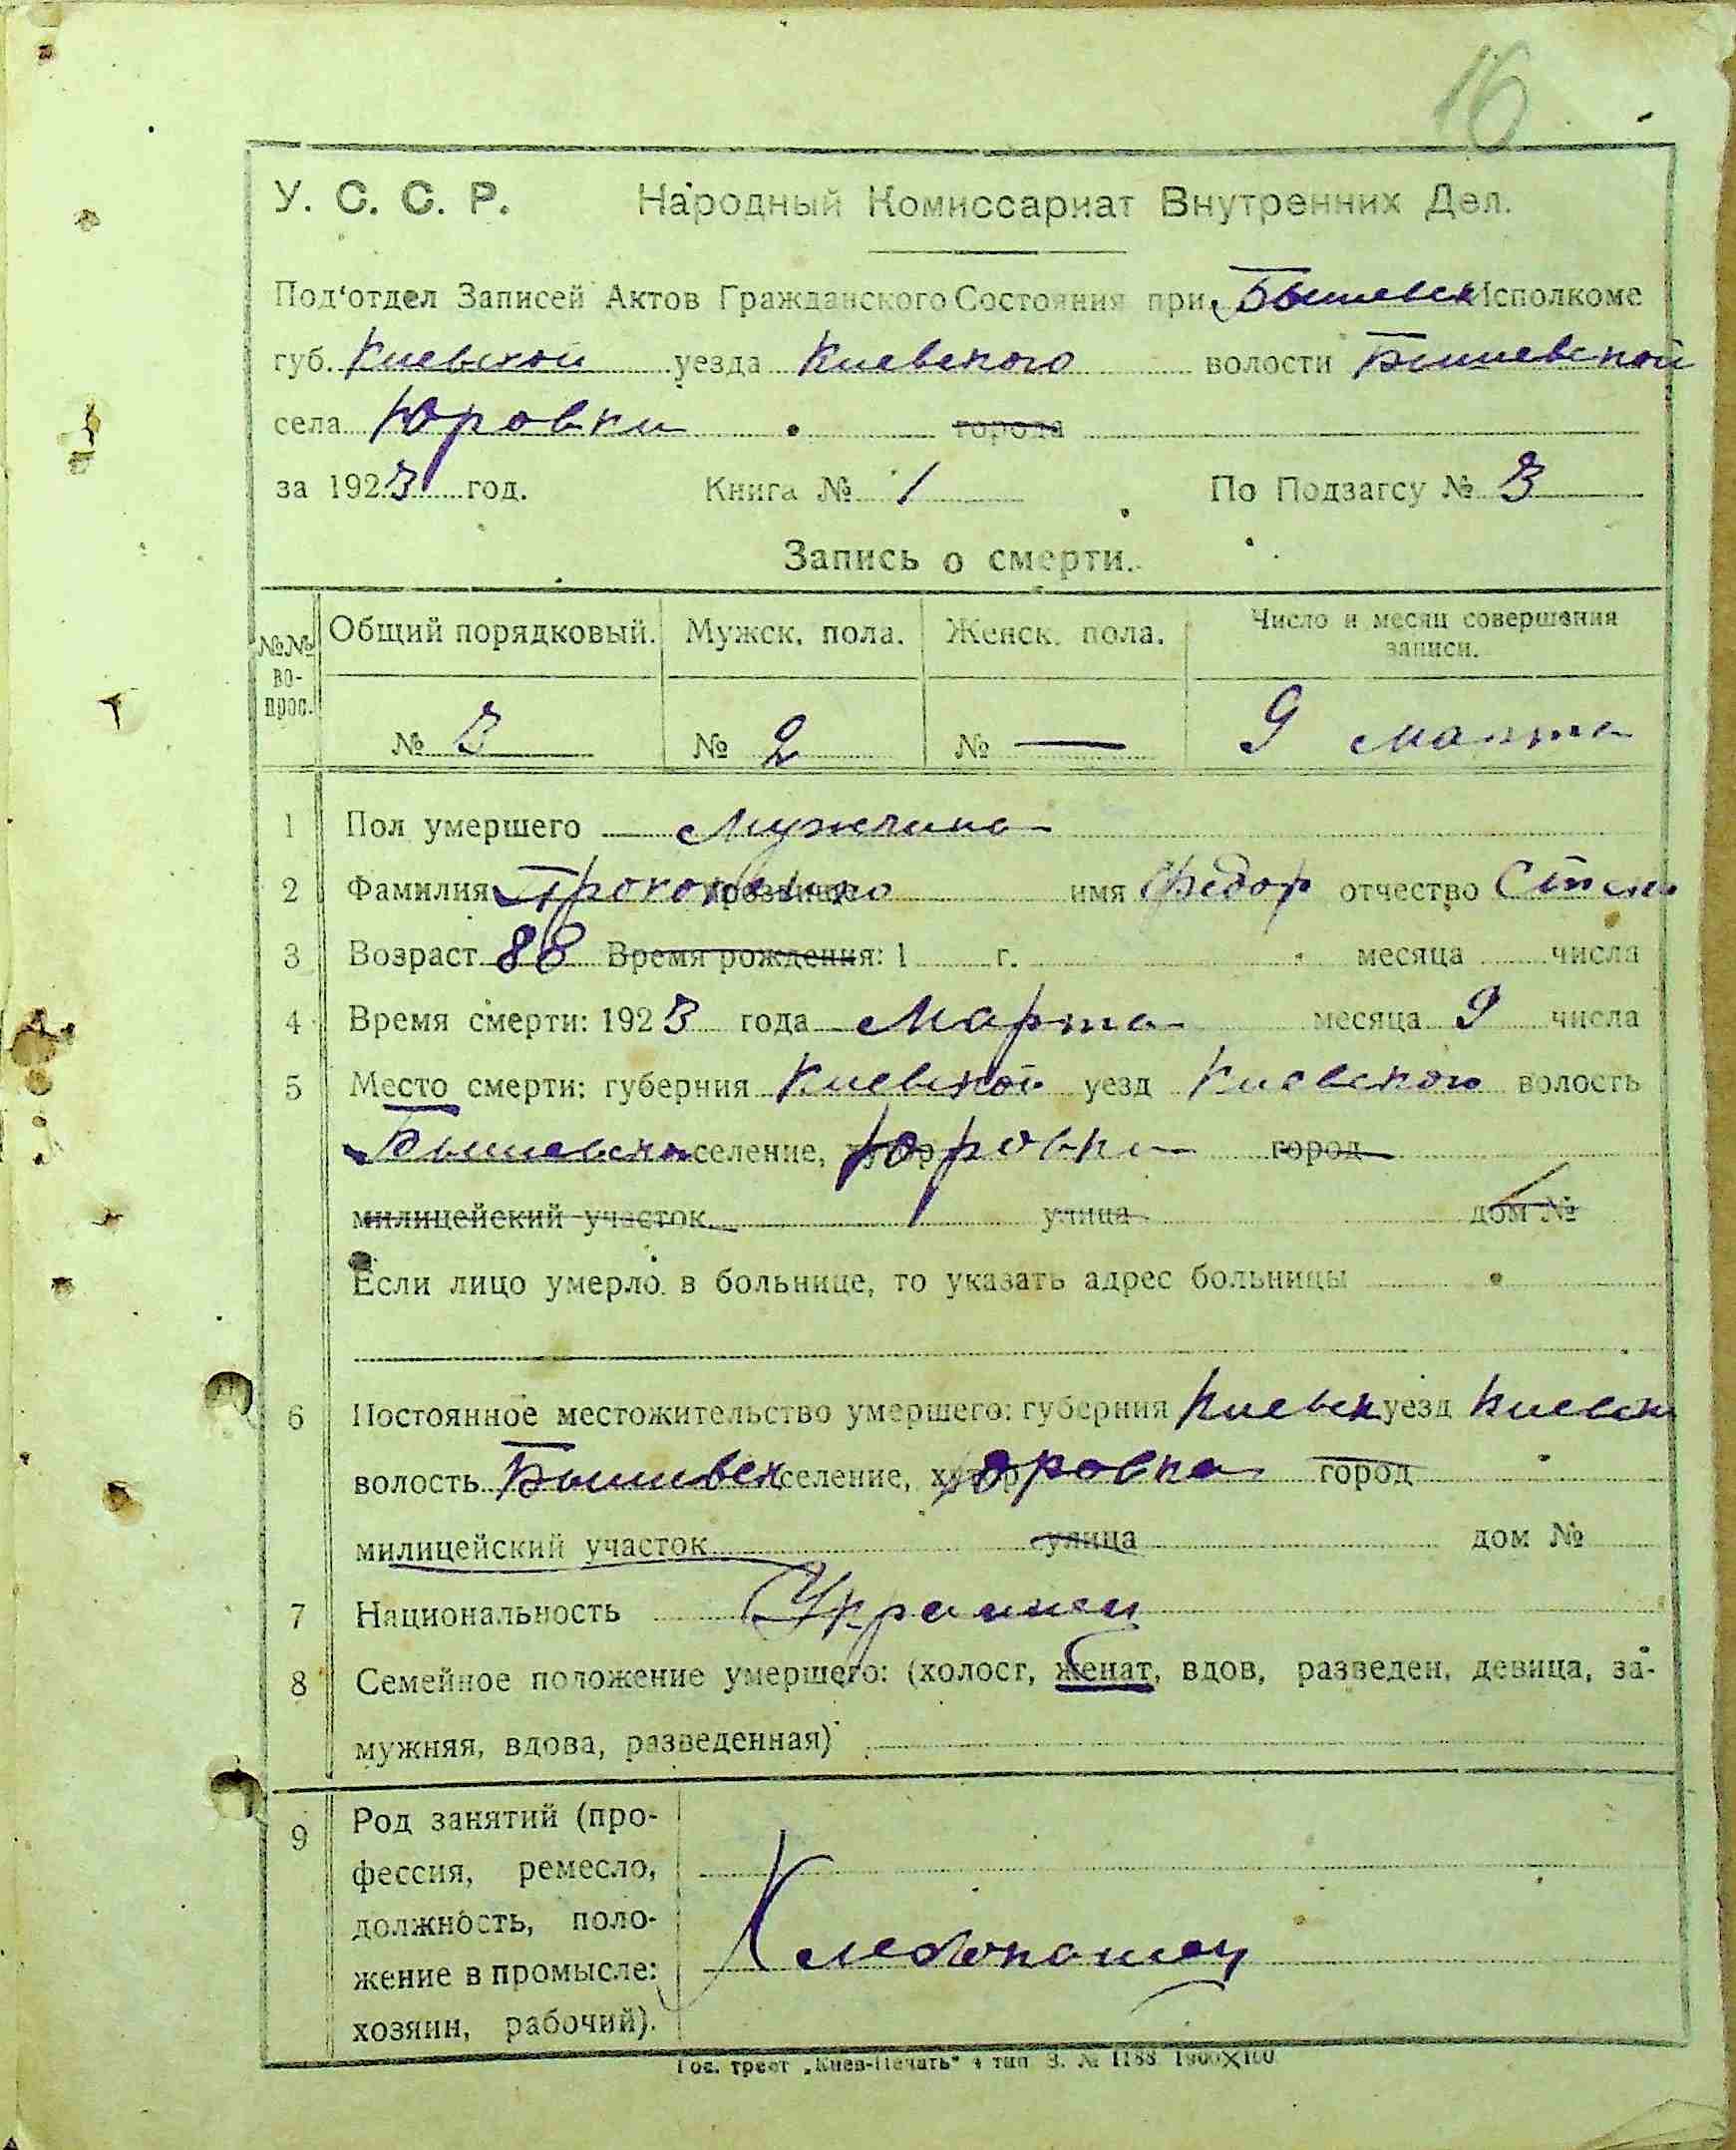 16
У. С. С. Р. Народный Комиссариат Внутренних Дел.
Под'отдел Записей Актов Гражданского Состояния при Бышевск Исполкоме
губ. Киевской уезда Киевского волости Бышевской
села Юровки города
за 1923 год. Книга № 1 По Подзагсу № 3
Запись о смерти.
№№ во-прос. Общий порядковый. Мужск. пола. Женск. пола. Число и месяц совершения записи.
№ 3 № 2 № — 9 марта
1 Пол умершего Мужчина
2 Фамилия прозвище имя Федор отчество
3 Возраст 88 Время рождения: 1 г. месяца числа
4 Время смерти: 1923 года Марта месяца 9 числа
5 Место смерти: губерния Киевской уезд Киевского волость
Бышевска селение, хутор Юровки город
милицейский участок улица дом №
Если лицо умерло в больнице, то указать адрес больницы
6 Постоянное местожительство умершего: губерния Киевск уезд Киевск
волость Бышивск селение, хутор Юровка город
милицейский участок улица дом №
7 Национальность Украинец
8 Семейное положение умершего: (холост, женат, вдов, разведен, девица, за-
мужняя, вдова, разведенная)
9 Род занятий (про-
фессия, ремесло,
должность, поло-
жение в промысле:
хозяин, рабочий).
Хлебопашец
Гос. трест „Киев-Печать" 4 тип З. № 1188 1900×100